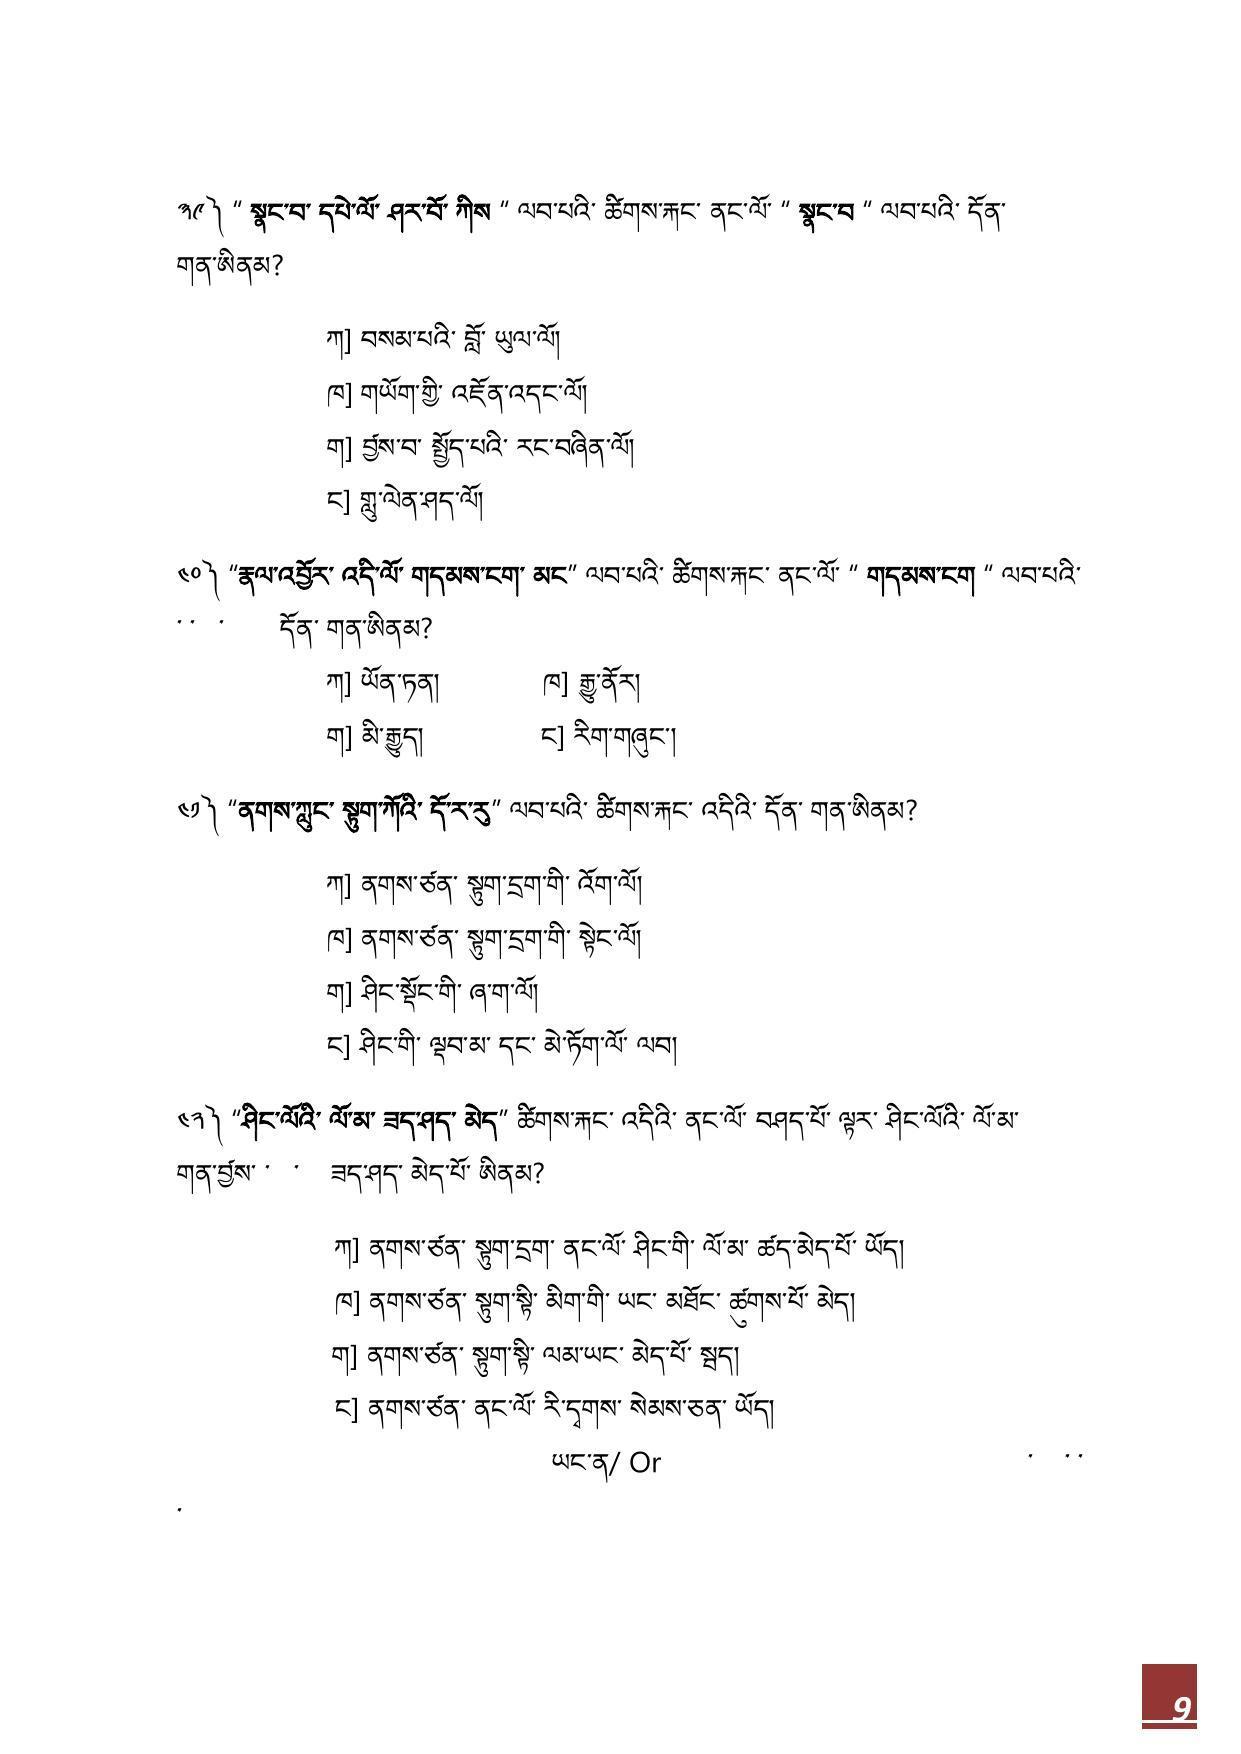 ༣༩༽ “ སྣང་བ་ དཔེ་ལོ་ ཤར་བོ་ ཀིས “ ལབ་པའི་ ཚིགས་རྐང་ ནང་ལོ་ “ སྣང་བ “ ལབ་པའི་ དོན་
གན་ཨིནམ?
ཀ] བསམ་པའི་ བློ་ ཡུལ་ལོ།
ཁ] གཡོག་གྱི་ འཛོན་འདང་ལོ།
ག] བྱས་བ་ སྤྱོད་པའི་ རང་བཞིན་ལོ།
ང] གླུ་ལེན་ཤད་ལོ།
༤༠༽ “རྣལ་འབྱོར་ འདི་ལོ་ གདམས་ངག་ མང“ ལབ་པའི་ ཚིགས་རྐང་ ནང་ལོ་ “ གདམས་ངག “ ལབ་པའི་
དོན་ གན་ཨིནམ?
ཀ] ཡོན་ཏན། ཁ] རྒྱུ་ནོར།
ག] མི་རྒྱུད། ང] རིག་གཞུང་།
༤༡༽ “ནགས་ཀླུང་ སྟུག་ཀོའི་ དོ་ར་རུ“ ལབ་པའི་ ཚིགས་རྐང་ འདིའི་ དོན་ གན་ཨིནམ?
ཀ] ནགས་ཙན་ སྟུག་དྲག་གི་ འོག་ལོ།
ཁ] ནགས་ཙན་ སྟུག་དྲག་གི་ སྟེང་ལོ།
ག] ཤིང་སྡོང་གི་ ཞ་ག་ལོ།
ང] ཤིང་གི་ ལྡབ་མ་ དང་ མེ་ཏོག་ལོ་ ལབ།
༤༢༽ “ཤིང་ལོའི་ ལོ་མ་ ཟད་ཤད་ མེད“ ཚིགས་རྐང་ འདིའི་ ནང་ལོ་ བཤད་པོ་ ལྟར་ ཤིང་ལོའི་ ལོ་མ་
གན་བྱས་ ཟད་ཤད་ མེད་པོ་ ཨིནམ?
ཀ] ནགས་ཙན་ སྟུག་དྲག་ ནང་ལོ་ ཤིང་གི་ ལོ་མ་ ཚད་མེད་པོ་ ཡོད།
ཁ] ནགས་ཙན་ སྟུག་སྟི་ མིག་གི་ ཡང་ མཐོང་ ཚུགས་པོ་ མེད།
ག] ནགས་ཙན་ སྟུག་སྟི་ ལམ་ཡང་ མེད་པོ་ སྦད།
ང] ནགས་ཙན་ ནང་ལོ་ རི་དྭགས་ སེམས་ཅན་ ཡོད།
ཡང་ན/ Or
9